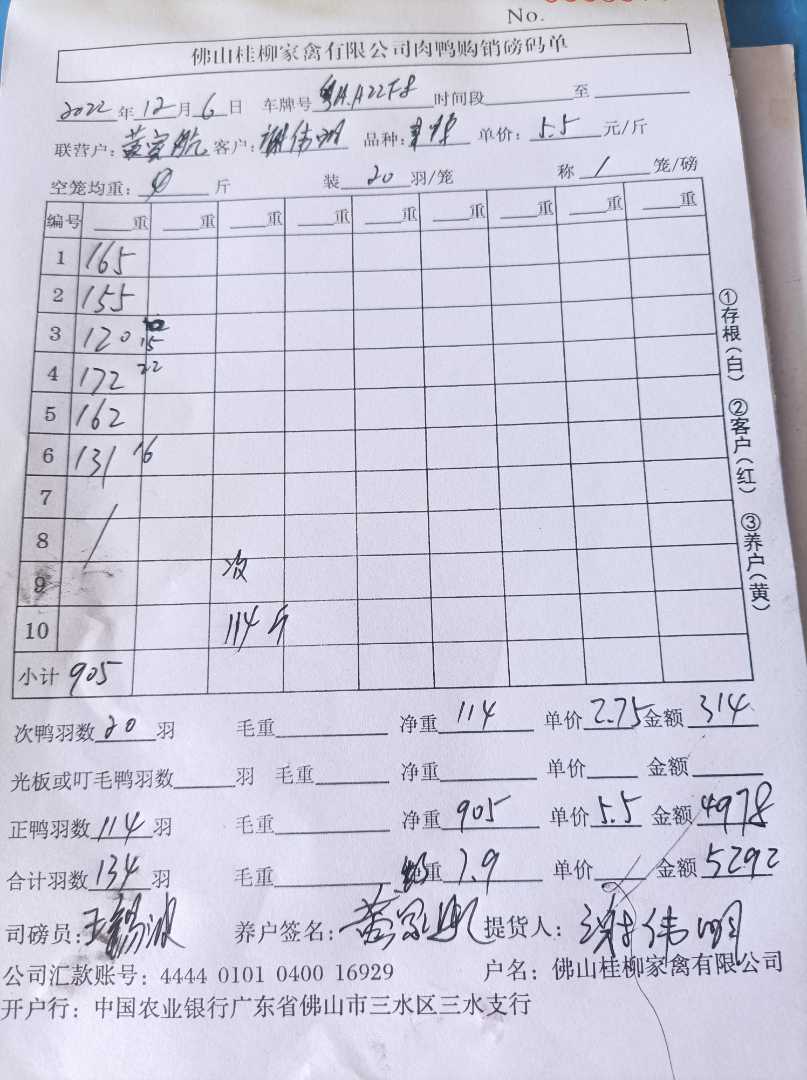 No.
佛山桂柳家禽有限公司肉鸭购销磅码单
2022年12月6日 车牌号 粤A.A22F8 时间段 至
联营户: 黄家航 客户: 谢伟明 品种: 单价: 5.5 元/斤
空笼均重: 斤 装 20 羽/笼 称 1 笼/磅
编号 重 重 重 重 重 重 重 重 重
1 165
2 155
3 120 15
4 172 22
5 162
6 131 16
7
8
9 次
10 114斤
小计 905
次鸭羽数 20 羽 毛重 净重 114 单价 2.75 金额 314
光板或叮毛鸭羽数 羽 毛重 净重 单价 金额
正鸭羽数 114 羽 毛重 净重 905 单价 5.5 金额 4978
合计羽数 134 羽 毛重 重 7.9 单价 金额 5292
司磅员: 王锡波 养户签名: 黄家航 提货人: 谢伟明
公司汇款账号: 4444 0101 0400 16929 户名: 佛山桂柳家禽有限公司
开户行: 中国农业银行广东省佛山市三水区三水支行
①存根(白) ②客户(红) ③养户(黄)